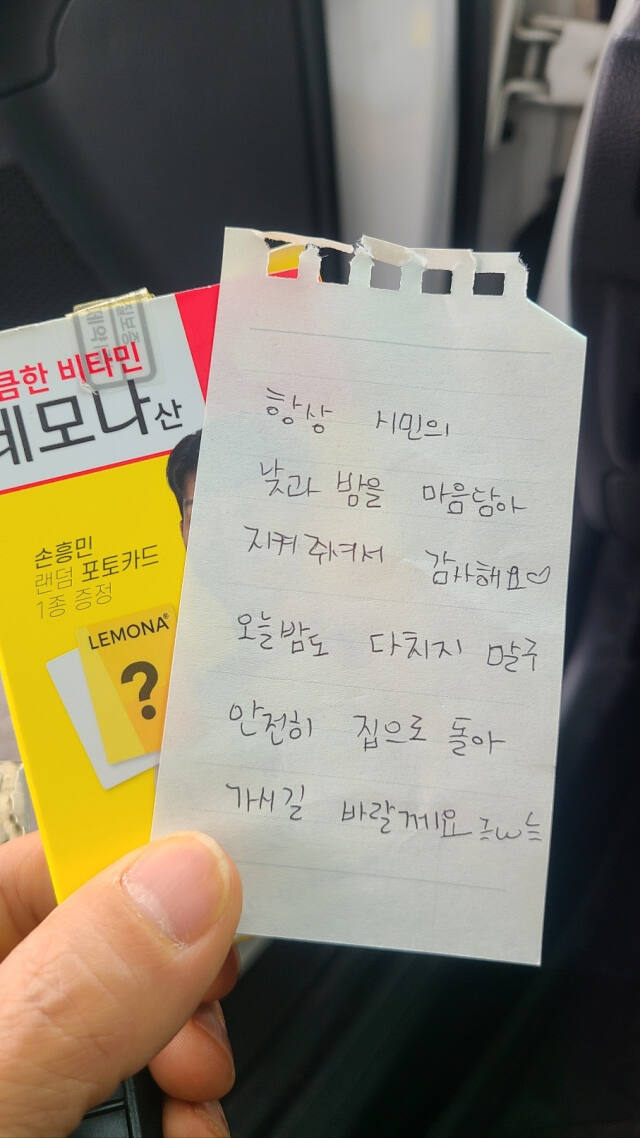 큼한 비타민
레모나산
손흥민
랜덤 포토카드
1종 증정
LEMONA®
?
항상 시민의
낮과 밤을 마음담아
지켜 주셔서 감사해요♡
오늘밤도 다치지 말구
안전히 집으로 돌아
가시길 바랄게요 ㅋω늘